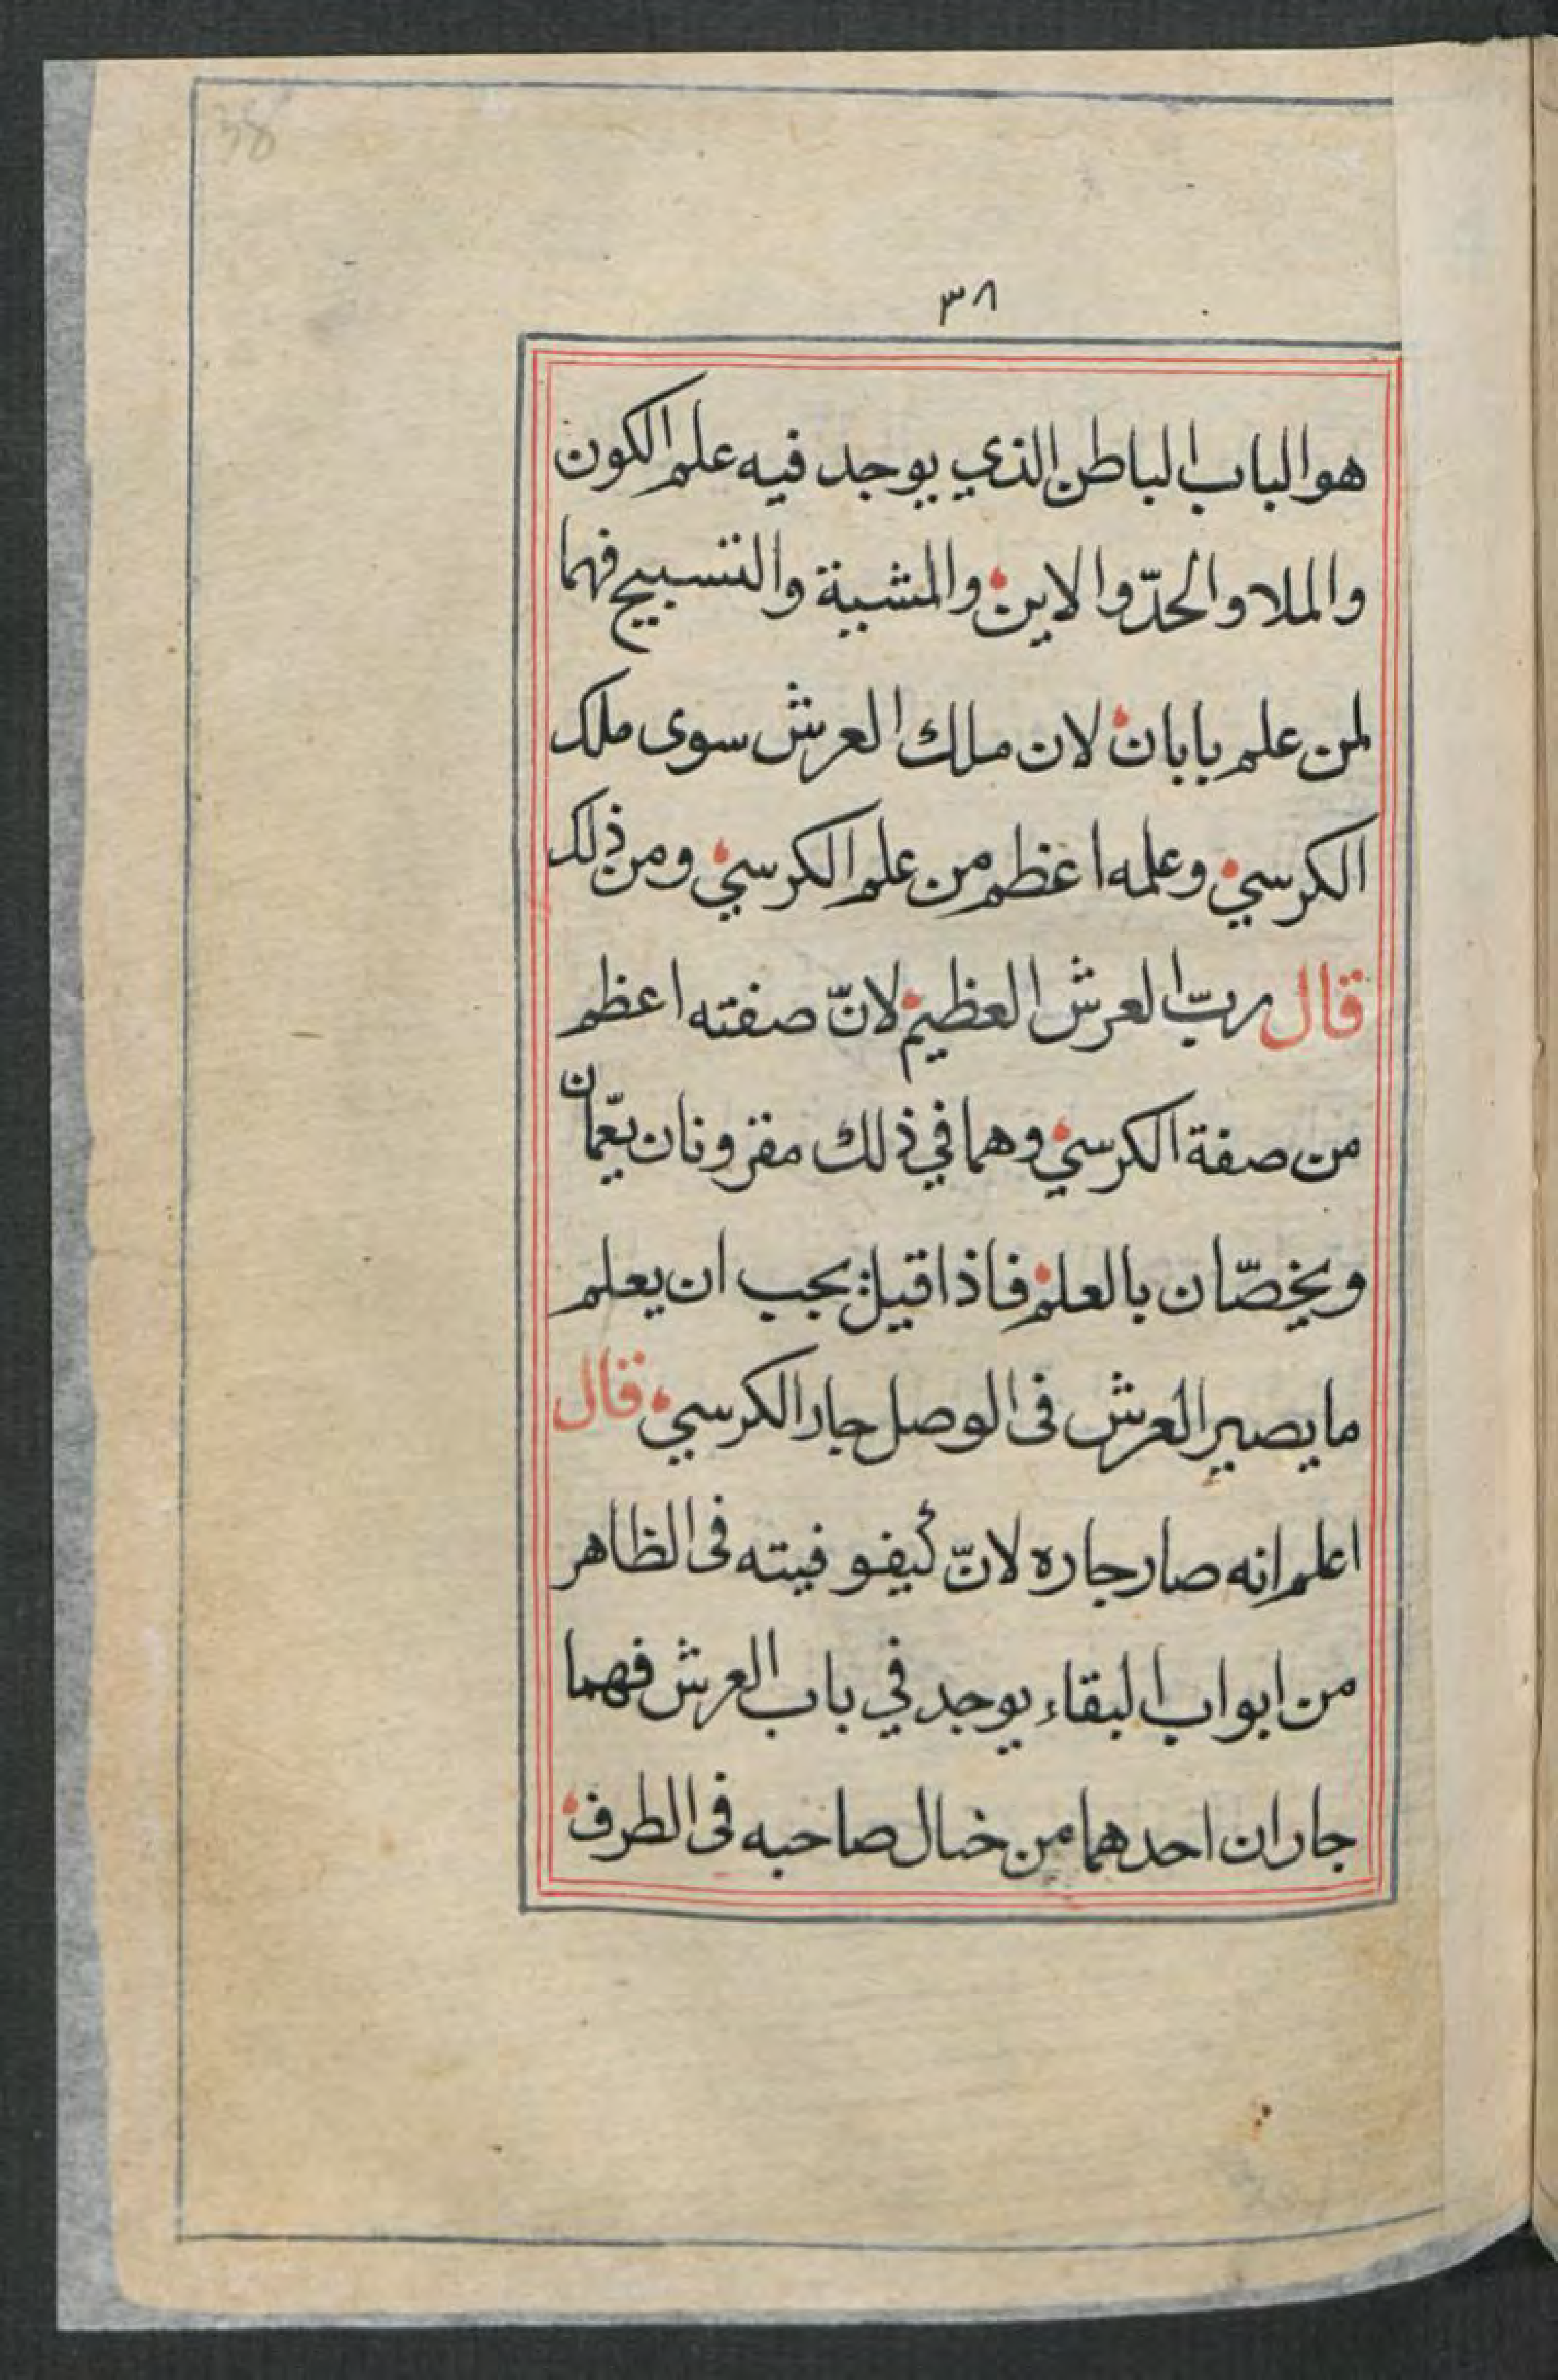 38
٣٨
هو الباب الباطن الذي يوجد فيه علم الكون
والملا والحدّ والاين والمشية والتسبيح فهما
لمن علم بابان لان ملك العرش سوى ملك
الكرسي وعلمه اعظم من علم الكرسي ومن ذلك
قال ربّ العرش العظيم لانّ صفته اعظم
من صفة الكرسي وهما في ذلك مقرونان يعّمان
ويخصّان بالعلم فاذا قيل يجب ان يعلم
ما يصير العرش فى الوصل جار الكرسي قال
اعلم انه صار جاره لانّ كيفوفيته فى الظاهر
من ابواب البقاء يوجد في باب العرش فهما
جاران احدهما من خيال صاحبه فى الطرف